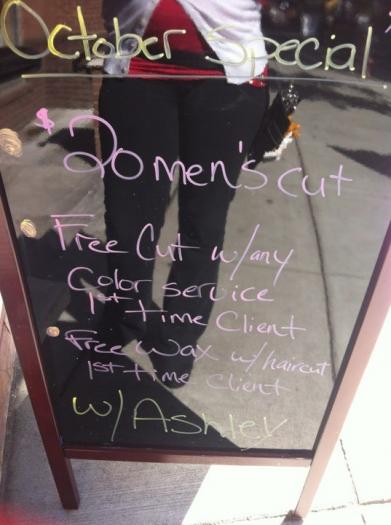 October Special
$20 men's cut
Free Cut w/any
Color service
1st time Client
Free Wax w/haircut
1st time client
w/Ashley